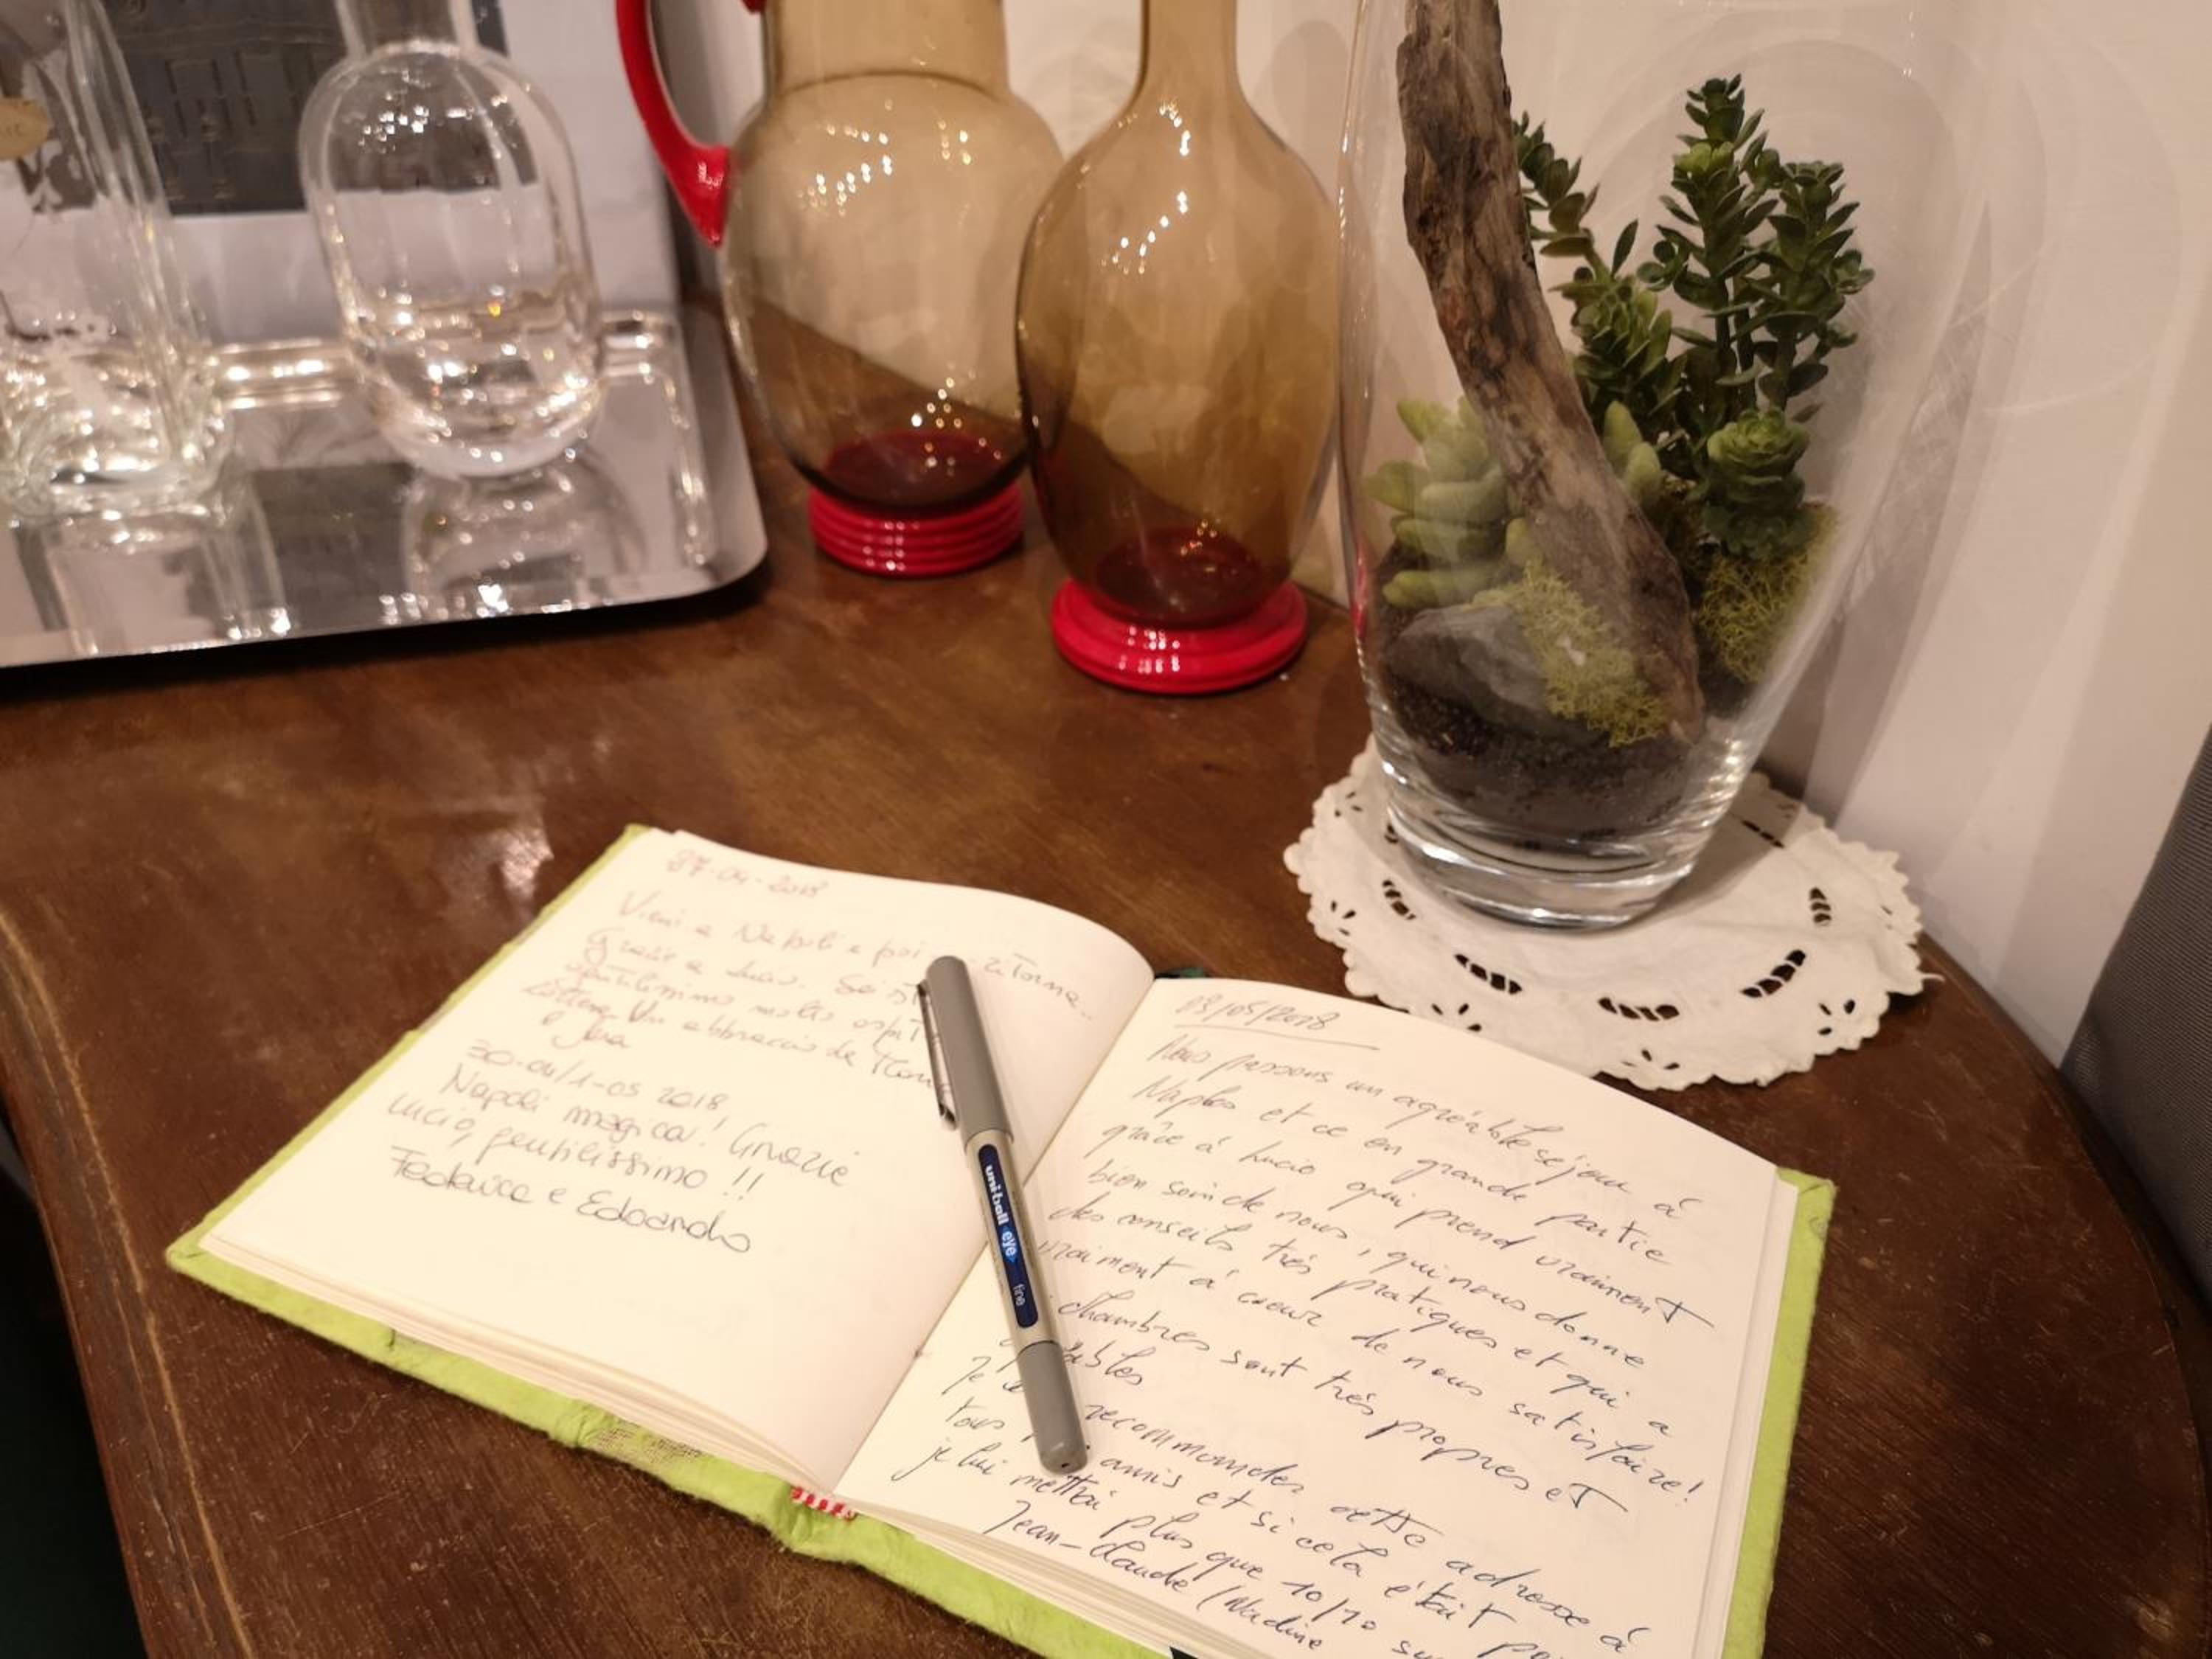 27-04-2018
Vieni a Napoli e poi ritorna...
Grazie a Lucio. Sei
gentilissimo molto
Un abbraccio da
e
30-04/1-05 2018
Napoli magica! Grazie
Lucio, gentilissimo !!
Federica e Edoardo
03/05/2018
Nous passons un agréable séjour à
Naples et ce en grande partie
grâce à Lucio qui prend vraiment
bien soin de nous, qui nous donne
des conseils très pratiques et qui a
vraiment à coeur de nous satisfaire!
chambres sont très propres et
Je recommander cette adresse à
tous amis et si cela était
je lui mettrai plus que 10/10
Jean-Claude / Nadine
uni-ball eye fine